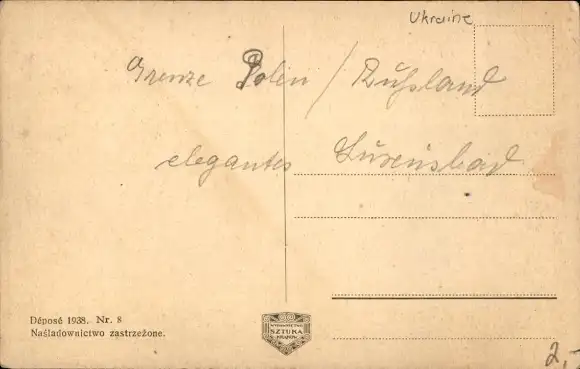 Ukraine
Grenze Polen / Rußland
elegantes Luxusbad
Déposé 1938. Nr. 8
Naśladownictwo zastrzeżone.
WYDAWNICTWO
SZTUKA
KRAKÓW
2,-